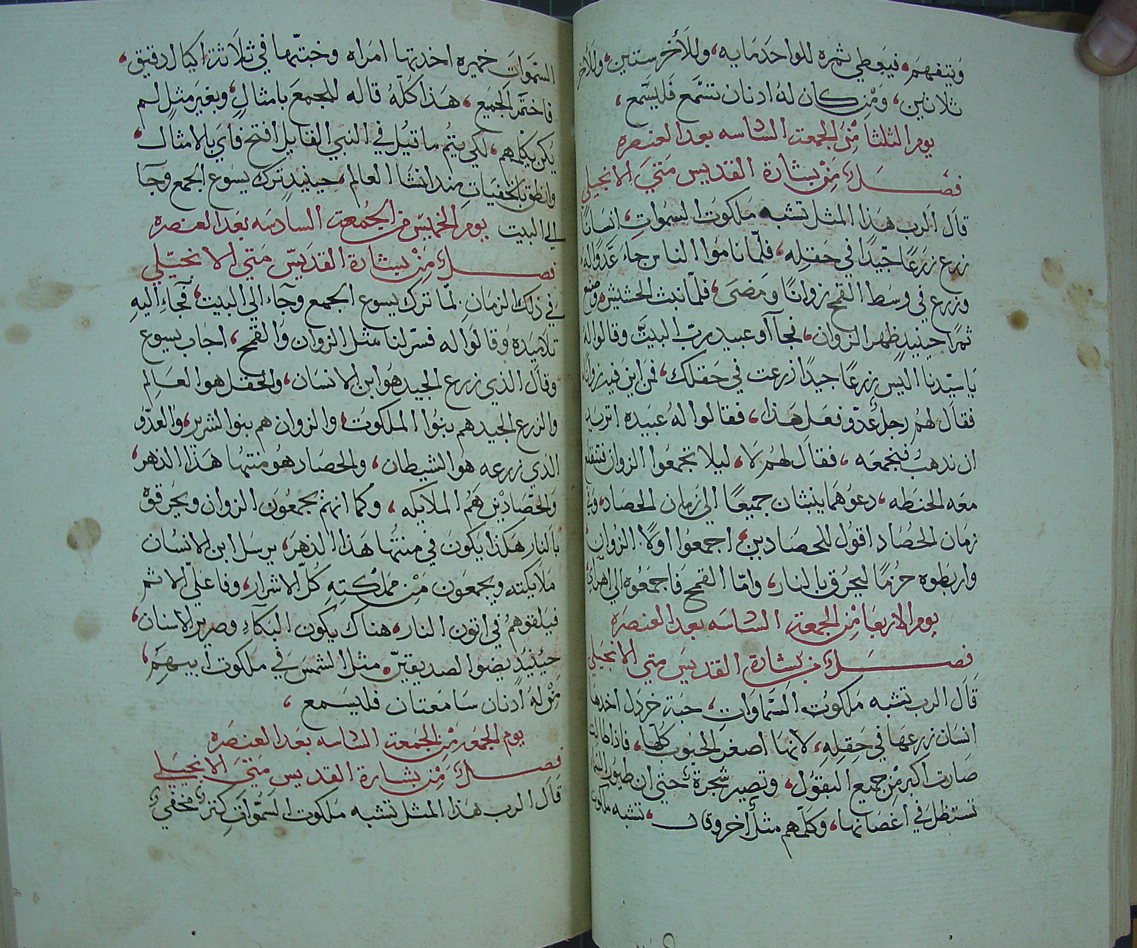 ويتفهم، فيعطي ثمره للواحد مايه، وللآخر ستين، وللآخر
ثلاثين، ومن كان له ادنان تسمع فليسمع،
يوم الثلثا من الجمعة السادسه بعد العنصره
فصل من بشارة القديس متي الانجيلي
قال الرب هذا المثل تشبه ملكوت السموات، انسانًا
زرع زرعًا جيدًا في حقله، فلما ناموا الناس جاء عدو له
وزرع في وسط القمح زوانًا ومضى، فلما نبت الحشيش وصنع
ثمرًا حينيدٍ ظهر الزوان، فجآ اوعبيد رب البيت وقالوا له
يا سيدنا اليس زرعًا جيدًا زرعت في حقلك، فمن اين فيه زوان
فقال لهم رجل عدو فعل هذا، فقالوا له عبيده اتريد
ان ندهب فنجمعه، فقال لهم لا، ليلا تجمعوا الزوان
معه الحنطه، دعوهما ينشان جميعًا الي زمان الحصاد،
زمان الحصاد اقول للحصادين، اجمعوا اولًا الزوان
واربطوه حزمًا ليحرق بالنار، واما القمح فاجمعوه الي
يوم الاربعا من الجمعة السادسه بعد العنصرة
فصل من بشارة القديس متي الانجيلي
قال الرب تشبه ملكوت السماوات، حبة خردل اخدها
انسان زرعها في حقله، لانها اصغر الحبوب كلها، فاذا طالت
صارت اكبر من جميع البقول، وتصير شجرة حتي ان طيور السما
تستظل في اغصانها، وكلمهم مثلًا اخر وقال، تشبه ملكوت
السموات خميره اخدتها امراه وخبتها في ثلاثة اكيال دقيق،
فاختمر الجميع، هذا كله قاله للجمع بامثال، وبغير مثل لم
يكن يكلمهم، لكي يتم ما قيل في النبي القايل افتح فاي بالامثال،
وانطق بالخفيات مند انشا العالم، حينيدٍ ترك يسوع الجمع وجآ
الي البيت يوم الخميس من الجمعة السادسه بعد العنصرة
فصل من بشارة القديس متي الانجيلي
في ذلك الزمان لما ترك يسوع الجمع وجاء الي البيت، فجاء اليهِ
تلاميده وقالوا له فسر لنا مثل الزوان والقمح، اجاب يسوع
وقال الذى زرع الجيد هو ابن الانسان، والحقل هو العالم
والزرع الجيد هم بنوا الملكوت، والزوان هم بنوا الشرير، والعدو
الذى زرعه هو الشيطان، والحصاد هو منتها هذا الدهر،
والحصادين هم الملايكه، وكما انهم يجمعون الزوان ويحرقوه
بالنار هكذا يكون في منتها هذا الدهر، يرسل ابن الانسان
ملايكته ويجمعون من مملكته كل الاشرار، وفاعلي الاثم
فيلقوهم في اتون النار، هناك يكون البكاء وصرير الاسنان،
حينيدٍ يضوا الصديقين مثل الشمس في ملكوت ابيهم،
من له ادنان سامعتان فليسمع،
يوم الجمعة من الجمعة السادسه بعد العنصرة
فصل من بشارة القديس متي الانجيلي
قال الرب هذا المثل تشبه ملكوت السموات كنز مخفي